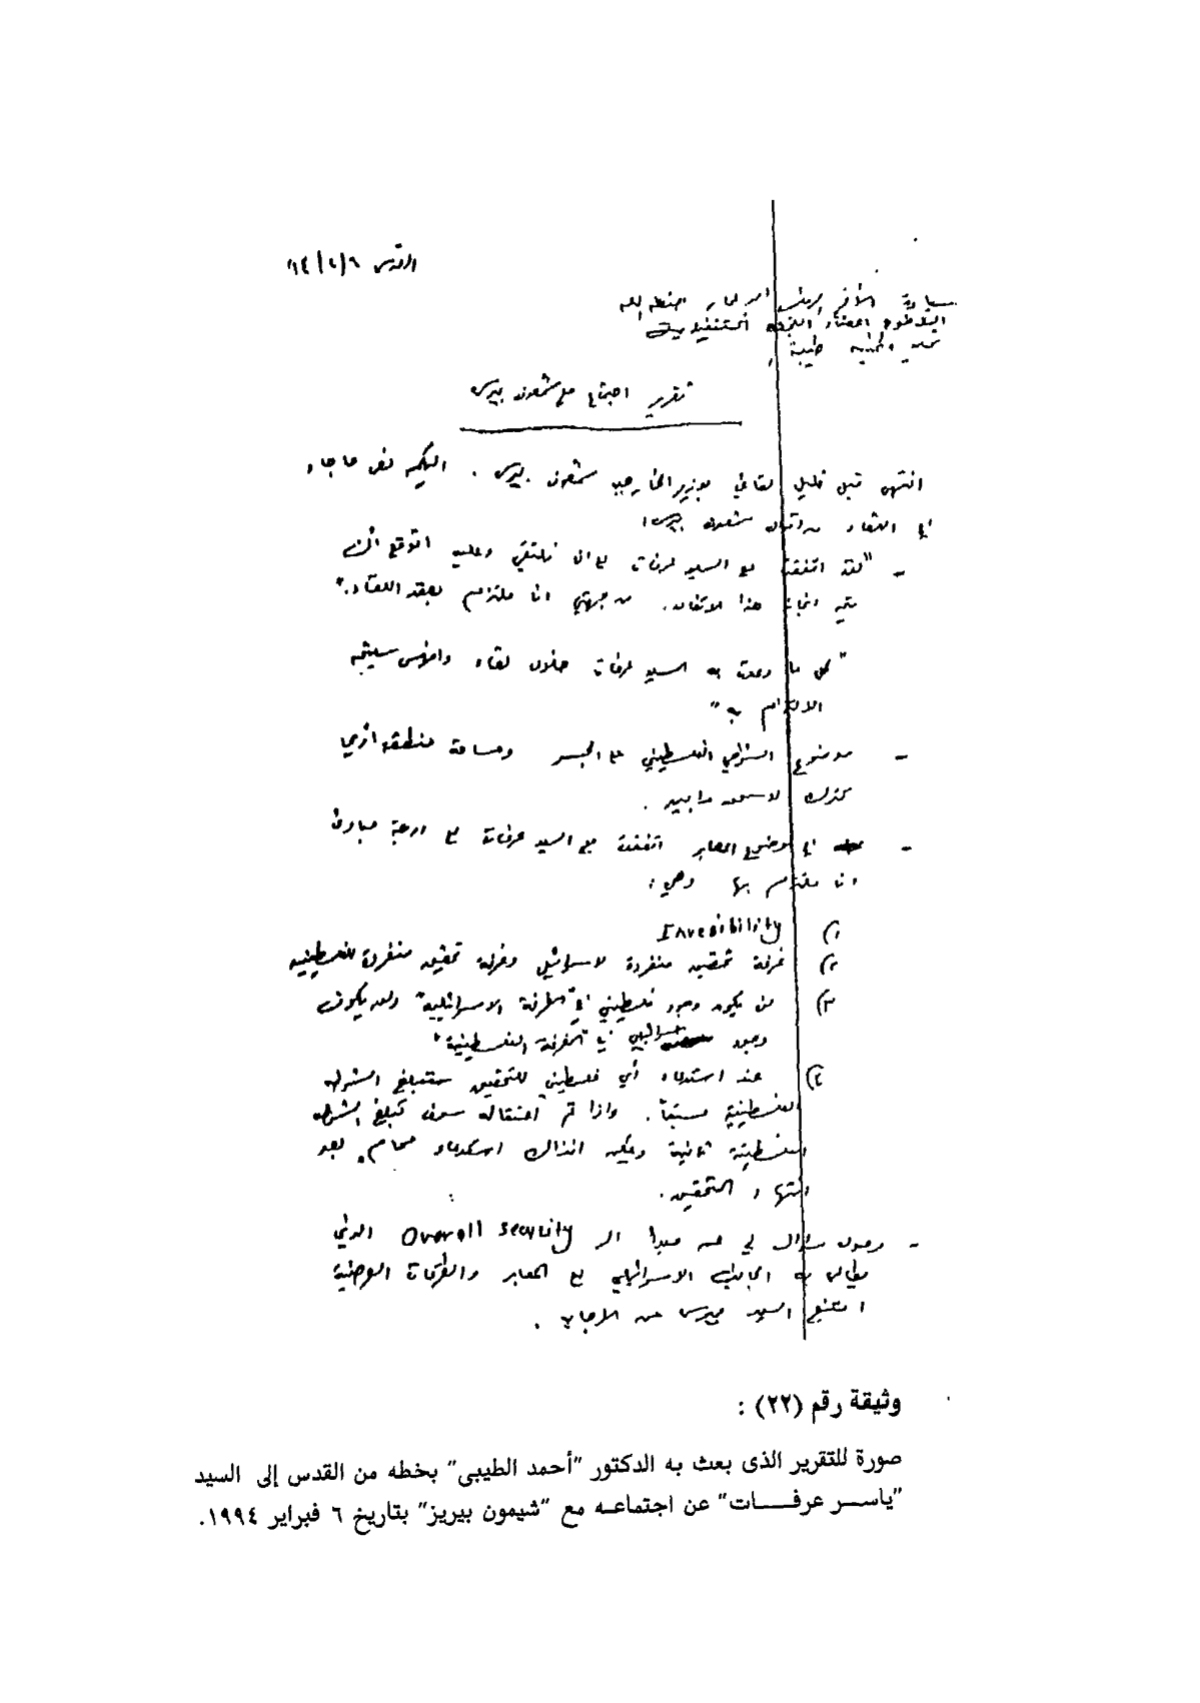 القدس ٩٤/٢/٦
سيادة الأخ الرئيس ابو عمار حفظه الله
الاخوة اعضاء اللجنة التنفيذية
تحية طيبة
تقرير اجتماع مع شمعون بيرس
انتهى قبل قليل لقائي بوزير الخارجية شمعون بيرس . اليكم نص ما جاء
في اللقاء من اقوال شمعون بيرس :
- "لقد اتفقت مع السيد عرفات على ان نلتقي وعليه اتوقع انه
يتم انجاز هذا الاتفاق. من جهتي انا ملتزم بعقد اللقاء."
"كل ما وعدت به السيد عرفات خلال لقاء دافوس سيتم
الالتزام به"
- موضوع الشرطي الفلسطيني على الجسر ومساحة منطقة اريحا
- في موضوع المعابر اتفقت مع السيد عرفات على اربعة مبادئ
انا ملتزم بها وهي :
١) Invesibility
٢) غرفة تحقيق منفردة لاسرائيل وغرفة تحقيق منفردة للفلسطينيين
٣) لن يكون وجود فلسطيني في "الغرفة الاسرائيلية" ولن يكون
وجود اسرائيلي في "الغرفة الفلسطينية"
٤) عند استدعاء أي فلسطيني للتحقيق ستبلغ الشرطة
الفلسطينية مسبقاً. واذا تم اعتقاله سوف تبلغ الشرطة
الفلسطينية ثانية ويمكن انذاك استدعاء محام بعد
انتهاء التحقيق.
- وحول سؤال لي عن مبدأ الـ Overall security الذي
يطالب به الجانب الاسرائيلي على المعابر والطرقات العرضية
امتنع السيد بيرس عن الاجابة .
وثيقة رقم (٢٢) :
صورة للتقرير الذى بعث به الدكتور "أحمد الطيبى" بخطه من القدس إلى السيد
"ياسر عرفات" عن اجتماعه مع "شيمون بيريز" بتاريخ ٦ فبراير ١٩٩٤.